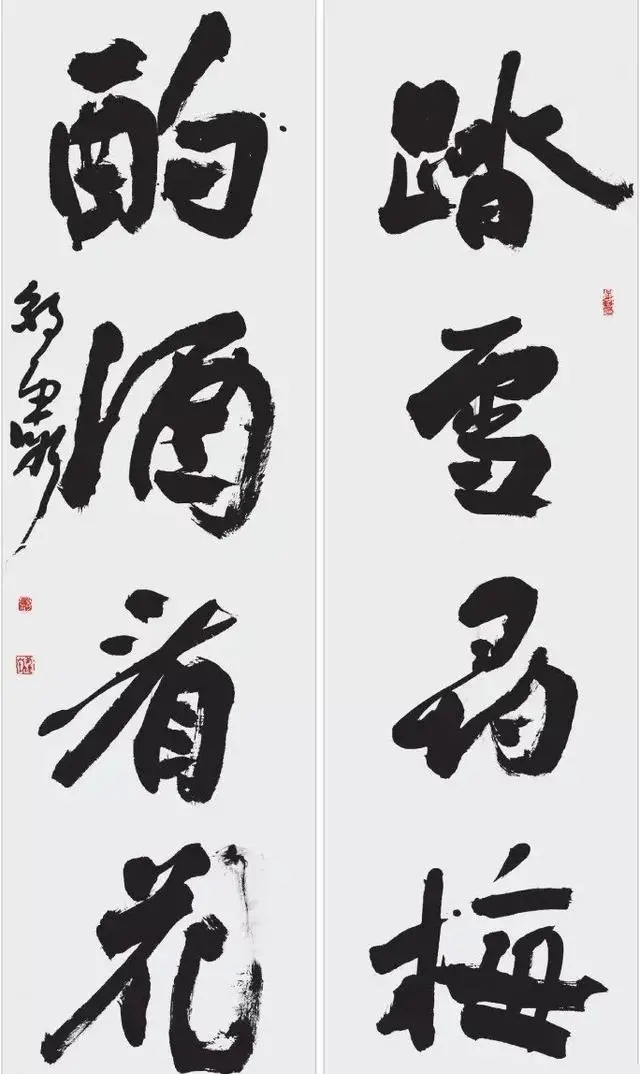 踏雪尋梅
酌酒看花